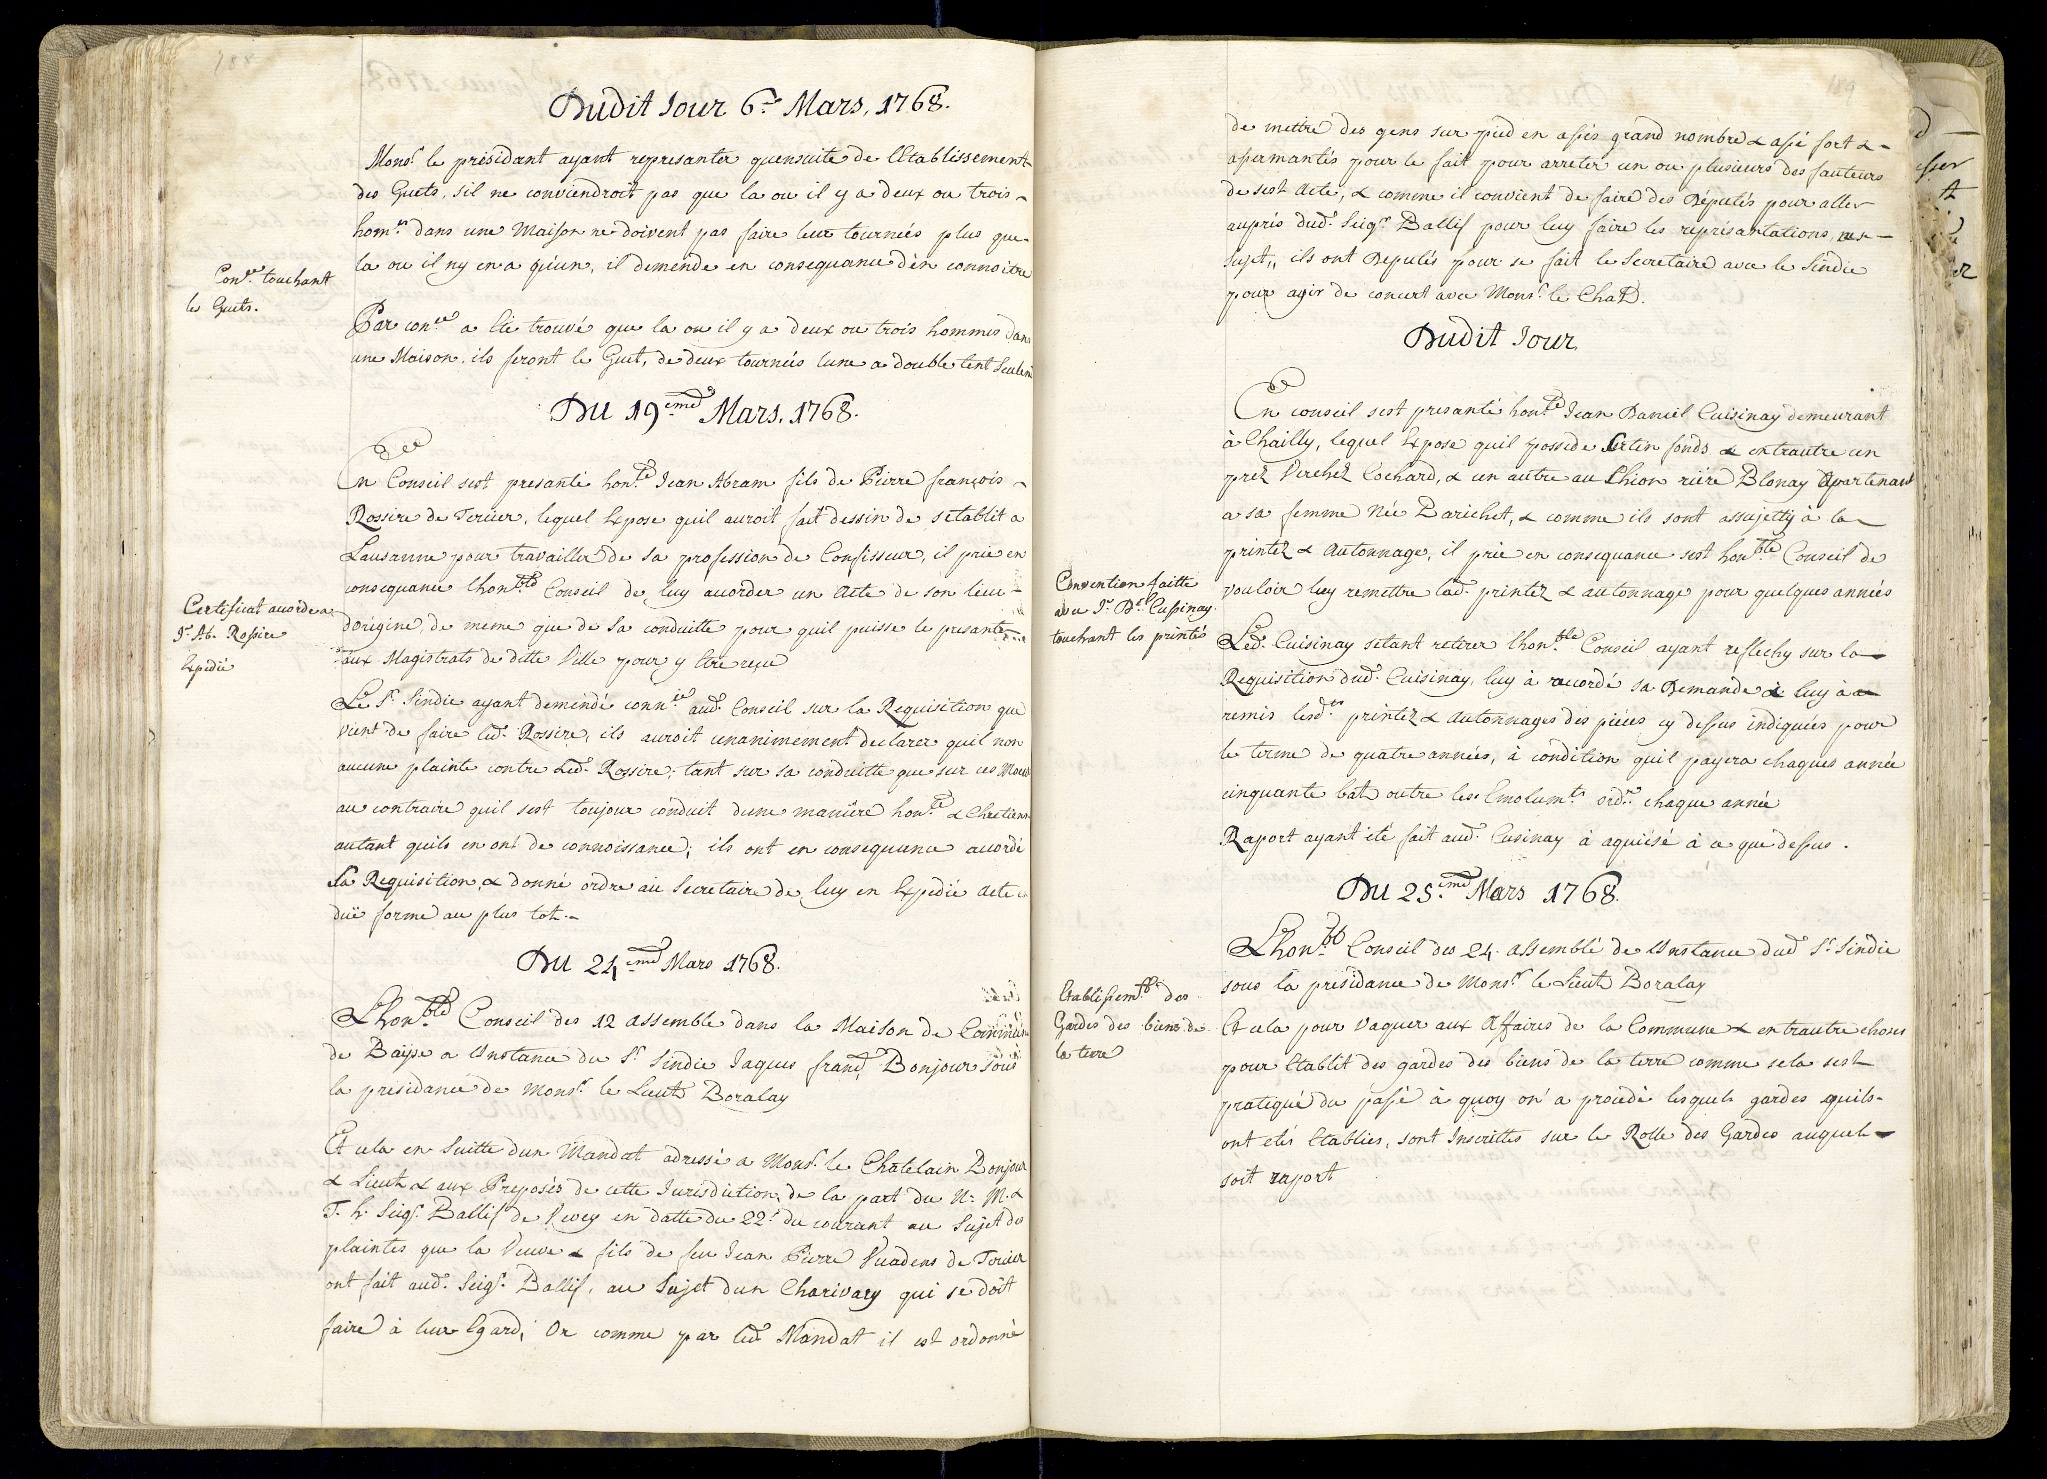 188
Dudit Jour 6.e Mars, 1768.
Mons.r le présidant ayant represanter quensuite de l'Etablissement
des Guets, sil ne conviendroit pas que la ou il y a deux ou trois
hom.es dans une Maison ne doivent pas faire leur tournées plus que
la ou il ny en a qu'un, il demende en consequance d'en connoitre
Con.ce touchant
les Guets.
Par con.ce a été trouvé que la ou il y a deux ou trois hommes dans
une Maison, ils feront le Guet, de deux tournées lune a double tent Seulem
Du 19.eme Mars, 1768.
En Conseil sest presanté hon.te Jean Abram fils de Pierre françois
Rossire de Tercier, lequel Expose quil auroit fait dessin de setablit a
Lausanne pour travailler de sa profession de Confisseur, il prie en
consequance lhon.ble Conseil de luy acorder un Acte de son lieu
dorigine de meme que de Sa conduitte pour quil puisse le presante
aux Magistrats de ditte Ville pour y Etre reçue
Certificat acorde a
J.n Ab. Rossire
Expedié
Le S.r Sindic ayant demendé conn.ce aud. Conseil sur la Requisition que
vient de faire led. Rossire, ils auroit unanimement declarer quil non
aucune plainte contre Led. Rossire, tant sur sa conduitte que sur ces Moeurs
au contraire quil sest toujour conduit dune maniere hon.te & Chretienne
autant quils en ont de connoissance; ils ont en consequance acordé
Sa Requisition & donné ordre au Secretaire de luy en Expedié Acte en
duë forme au plus tot.
Du 24.eme Mars 1768.
Lhon.ble Conseil des 12 assemble dans la Maison de Commune
de Baÿse a L'Instance du S.r Sindic Jaques franç. Bonjour sous
la presidance de Mons.r le Lieut. Boralay
Et cela en Suitte dun Mandat adressé a Mons.r le Chatelain Bonjour
& Lieut. & aux Preposés de cette Jurisdiction, de la part du N. M. &
T. h. Seig.r Ballif de Vevey en datte du 22.e du courant au Sujet des
plaintes que la Veuve & fils de feu Jean Pierre Vuadens de Tercier
ont fait aud. Seig.r Ballif, au Sujet dun Charivary qui se doit
faire à leur Egard; Or comme par led. Mandat il est ordonné
189
de mettre des gens sur pied en assés grand nombre & assé fort &
asermantés pour le fait pour arreter un ou plusieurs des fauteurs
de sest Acte, & comme il convient de faire des Députés pour aller
aupres dud. Seig.r Ballif pour luy faire les représantations, au
Sujet, ils ont Deputés pour se fait le Secretaire avec le Sindic
pour agir de concert avec Mons.r le Chat.
Dudit Jour
En conseil sest presanté hon.te Jean Daniel Cuisinay demeurant
à Chailly, lequel Expose quil possede Certin fonds & entrautre un
prez Verchez Cochard, & un autre au Chion riére Blonay Apartenant
a sa femme Née Parichet, & comme ils sont assujetty à la
printez & Autonnage, il prie en consequance sest hon.ble Conseil de
vouloir luy remettre lad. printez & autonnage pour quelques années
Convention faitte
avec J.n D.l Cussinay
touchant les printés
Led. Cuisinay setant retirer lhon.ble Conseil ayant reflechy sur la
Requisition dud. Cuisinay, luy à racordé sa Demande & luy à
remis lesd.tes printez & Autonnages des piéces cy dessus indiquées pour
le terme de quatre années, à condition quil payera chaques année
cinquante batz outre les Emolum.ts ord.re chaque année
Raport ayant été fait aud. Cusinay à aquiisé à ce que dessus.
Du 25.eme Mars 1768.
Lhon.ble Conseil des 24. assemblé de L'Instance dud. S.r Sindic
sous la présidance de Mons.r le Lieut. Boralay
Etablissem.t des
Gardes des biens de
la terre
Et cela pour vaquer aux Affaires de la Commune & entrautre choses
pour Etablit des gardes des biens de la terre comme sela sest
pratiqué du passé à quoy on a procédé lesquels gardes quils
ont etés Etablies, sont Inscrittes sur le Rolle des Gardes auquel
soit raport